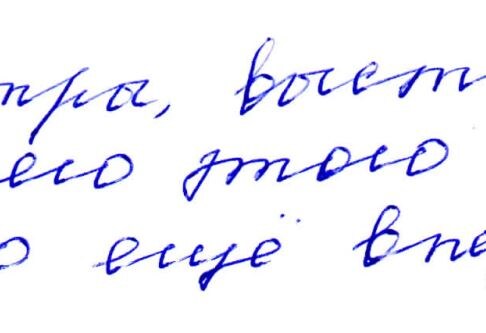 тра, выст
его этого
о ещё впе